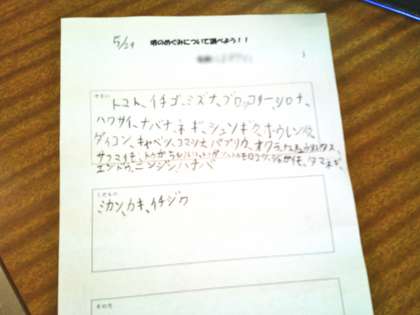 5/29
町のめぐみについて調べよう！！
やさい
トマト、イチゴ、ミズナ、ブロッコリー、シロナ、
ハクサイ、ナバナ、ネギ、シュンギク、ホウレンソウ、
ダイコン、キャベツ、コマツナ、パプリカ、オクラ、ナス、キュウリ、レタス、
サツマイモ、トウガラシ、トウモロコシ、ジャガイモ、タマネギ、
エンドウ、ニンジン、ハナバ
くだもの
ミカン、カキ、イチジク
その他